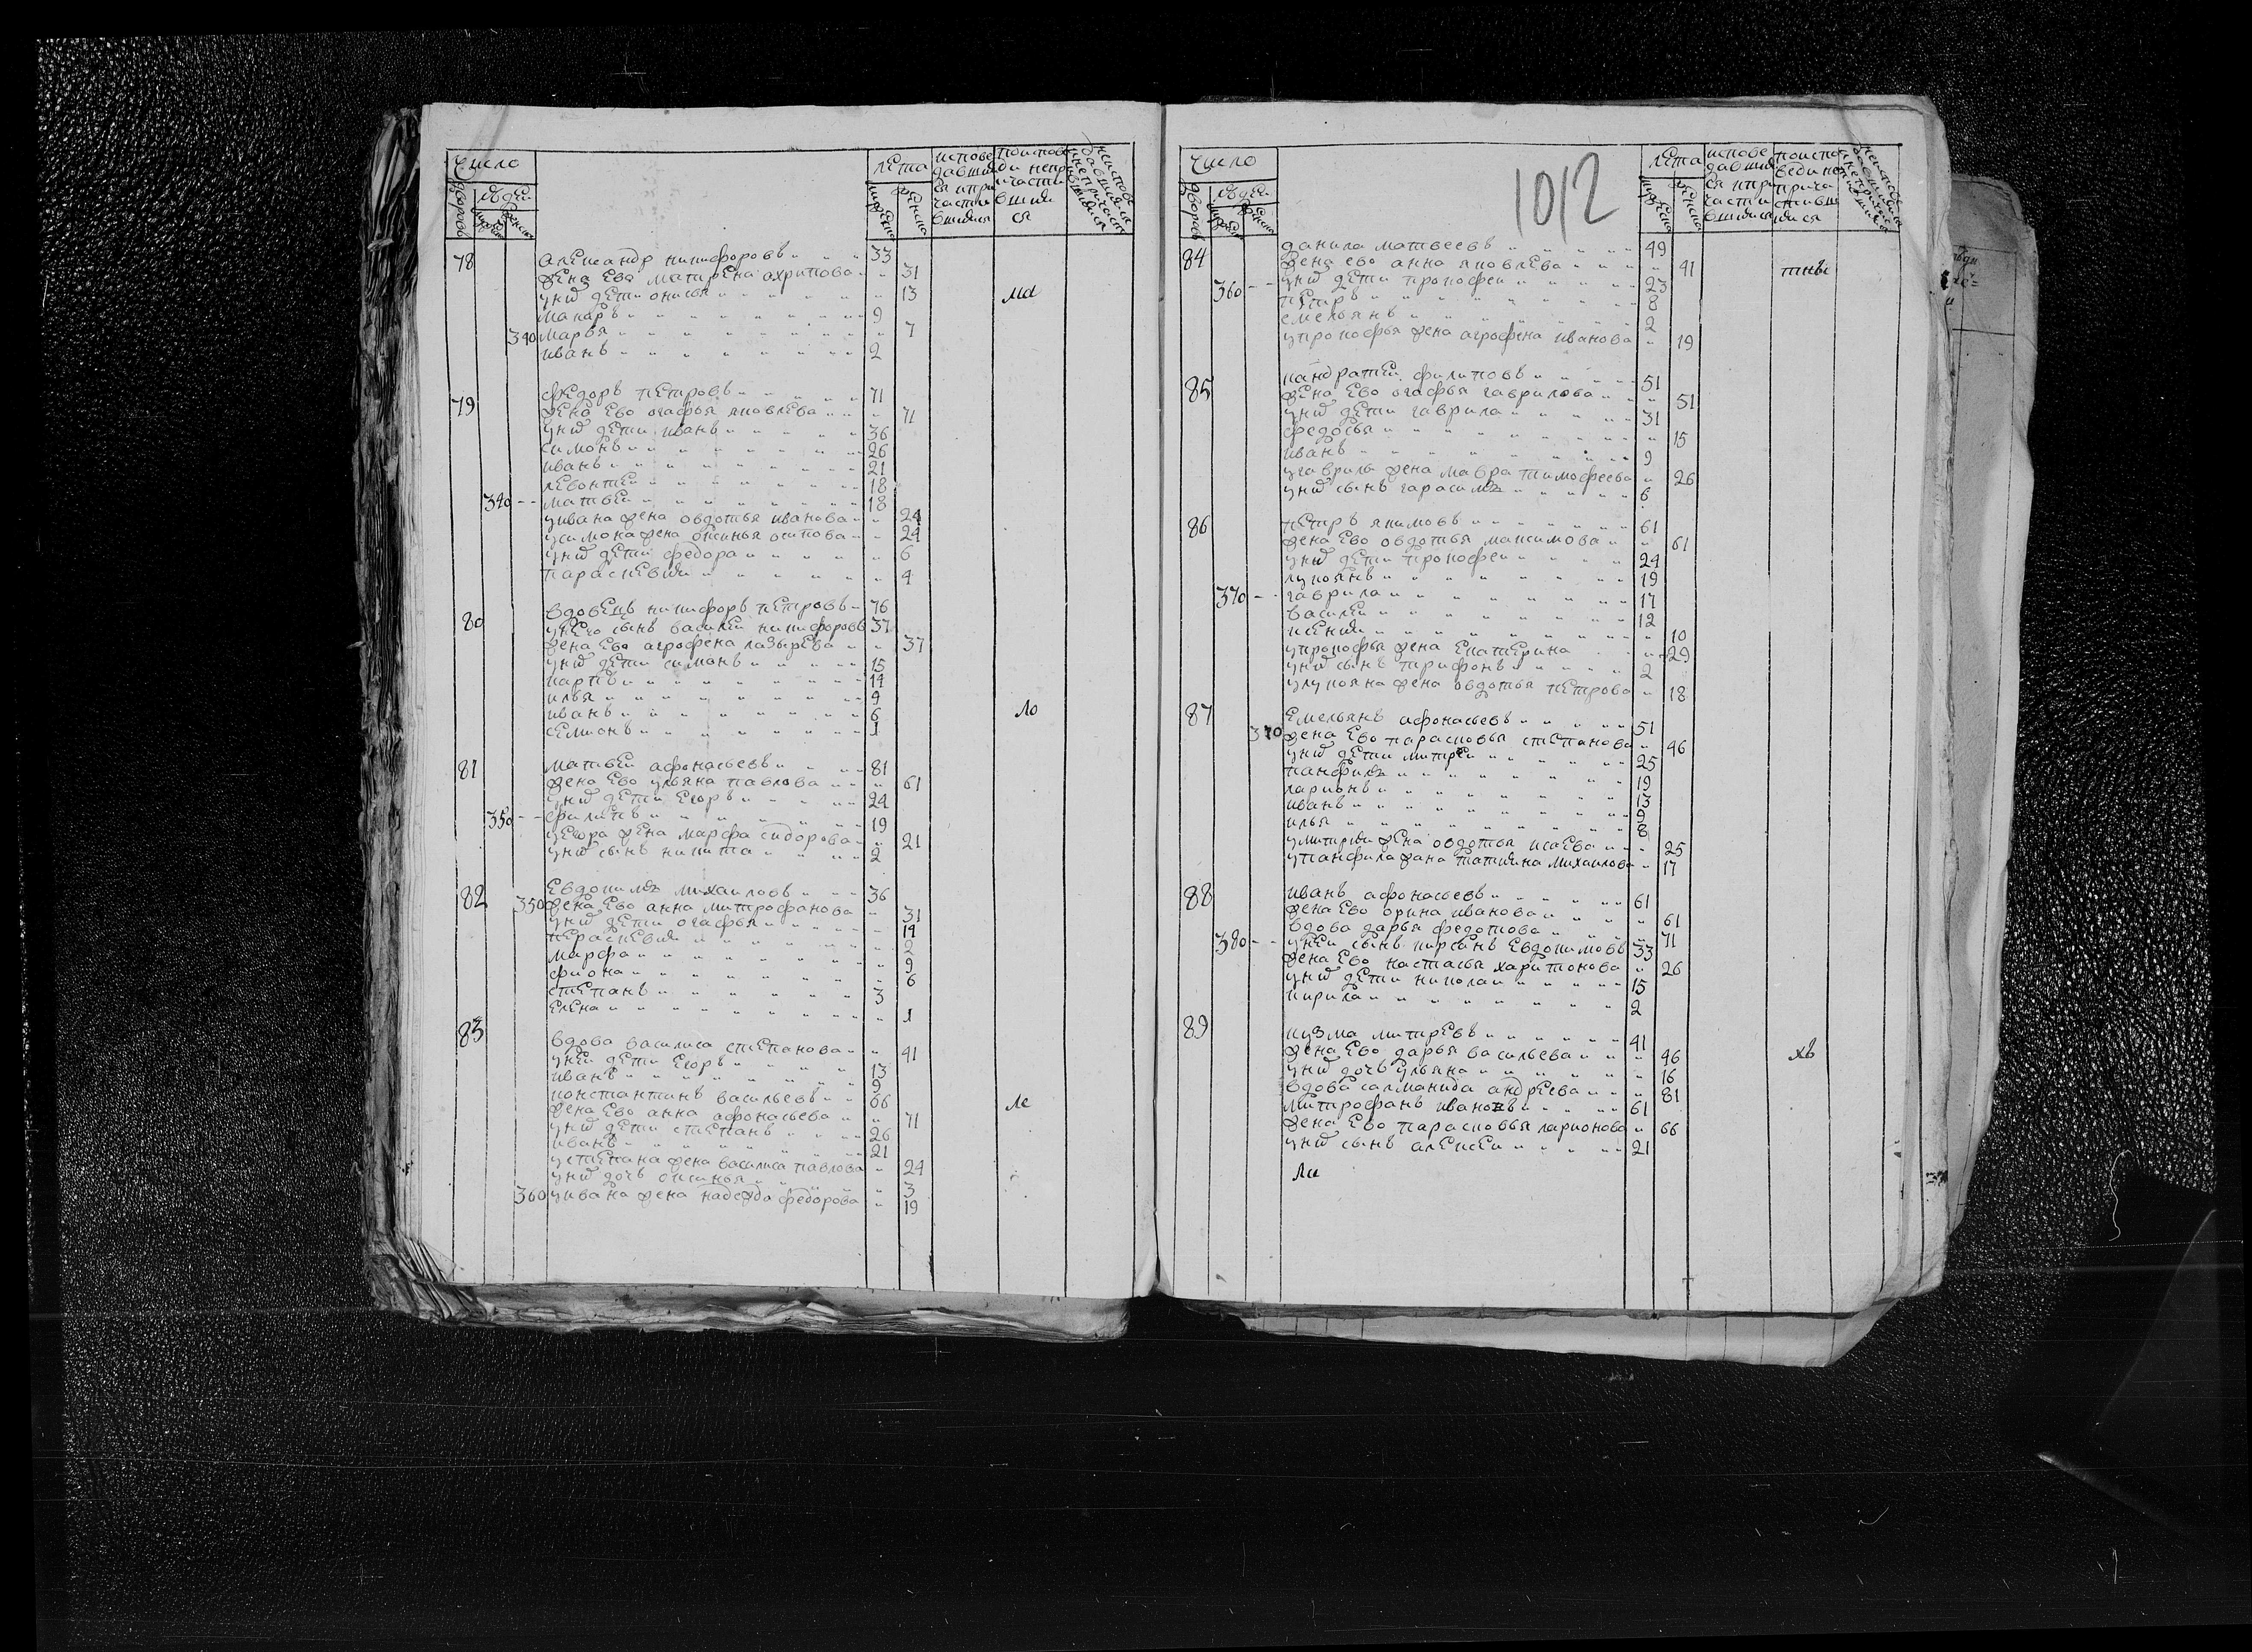 число
лета
испове
давшия
ся и при
частив
шияся
по испов
еди непр
ичасти
вшия
ся
дворовъ
людеи
78
Александр никифоровъ 33
жена ево матрена ахрипова 31
у них дети онисья 13
макаръ 9
340 марья 7
иванъ 2
ма
79
федоръ петровъ 71
жена ево огафья яковлева 71
у них дети иванъ 36
симонъ 26
иванъ 21
левонтеи 18
340 матвеи 18
у ивана жена овдотья иванова 24
у симона жена оксинья осипова 24
у них дети федора 6
параскевия 4
80
вдовецъ никифоръ петровъ 76
у нево сынъ василеи никифоровъ 37
жена ево агрофена лазырева 37
у них дети симанъ 15
карпъ 14
илья 9
иванъ 6
семионъ 1
ло
81
матвеи афонасьевъ 81
жена ево ульяна павлова 61
у них дети егоръ 24
350 филипъ 19
у егора жена марфа сидорова 21
у них сынъ никита 2
82
евдокимъ михаиловъ 36
350 жена ево анна митрофанова 31
у них дети огафья 14
пераскевия 2
марфа 9
фиона 6
степанъ 3
елена 1
83
вдова василиса степанова 41
у неи дети егоръ 13
иванъ 9
константинъ васильевъ 66
жена ево анна афонасьева 71
у них дети степанъ 26
иванъ 21
у степана жена василиса павлова 24
у них дочь оксинья 3
360 у ивана жена надежда федорова 19
ле
1012
число
лета
испове
давшия
ся и при
части
вшияся
по испо
веди не
прича
стивш
ияся
дворовъ
людеи
84
данила матвеевъ 49
жена ево анна яковлева 41
360 у них дети прокофеи 23
петръ 8
емельянъ 2
у прокофья жена агрофена иванова 19
тнъ
85
кандратеи филиповъ 51
жена ево огафья гаврилова 51
у них дети гаврила 31
федосья 15
иванъ 9
у гаврила жена мавра тимофеева 26
у них сынъ гарасимъ 6
86
петръ якимовъ 61
жена ево овдотья максимова 61
у них дети прокофеи 24
лукоянъ 19
370 гаврила 17
василеи 12
ксения 10
у прокофья жена екатерина 29
у них сынъ трифонъ 2
у лукояна жена овдотья петрова 18
87
емельянъ афонасьевъ 51
370 жена ево парасковья степанова 46
у них дети митреи 25
панфилъ 19
ларионъ 13
иванъ 9
илья 8
у митрия жена овдотья исаева 25
у панфила жана татияна михаилова 17
88
иванъ афонасьевъ 61
жена ево орина иванова 61
вдова дарья федотова 71
380 у неи сынъ кирсанъ евдокимовъ 33
жена ево настасья харитонова 26
у них дети николаи 15
кирила 2
89
кузма митревъ 41
жена ево дарья васильева 46
у них дочь ульяна 16
вдова салманида андреева 81
митрофанъ ивановъ 61
жена ево парасковья ларионова 66
у них сынъ алексеи 21
хъ
ли